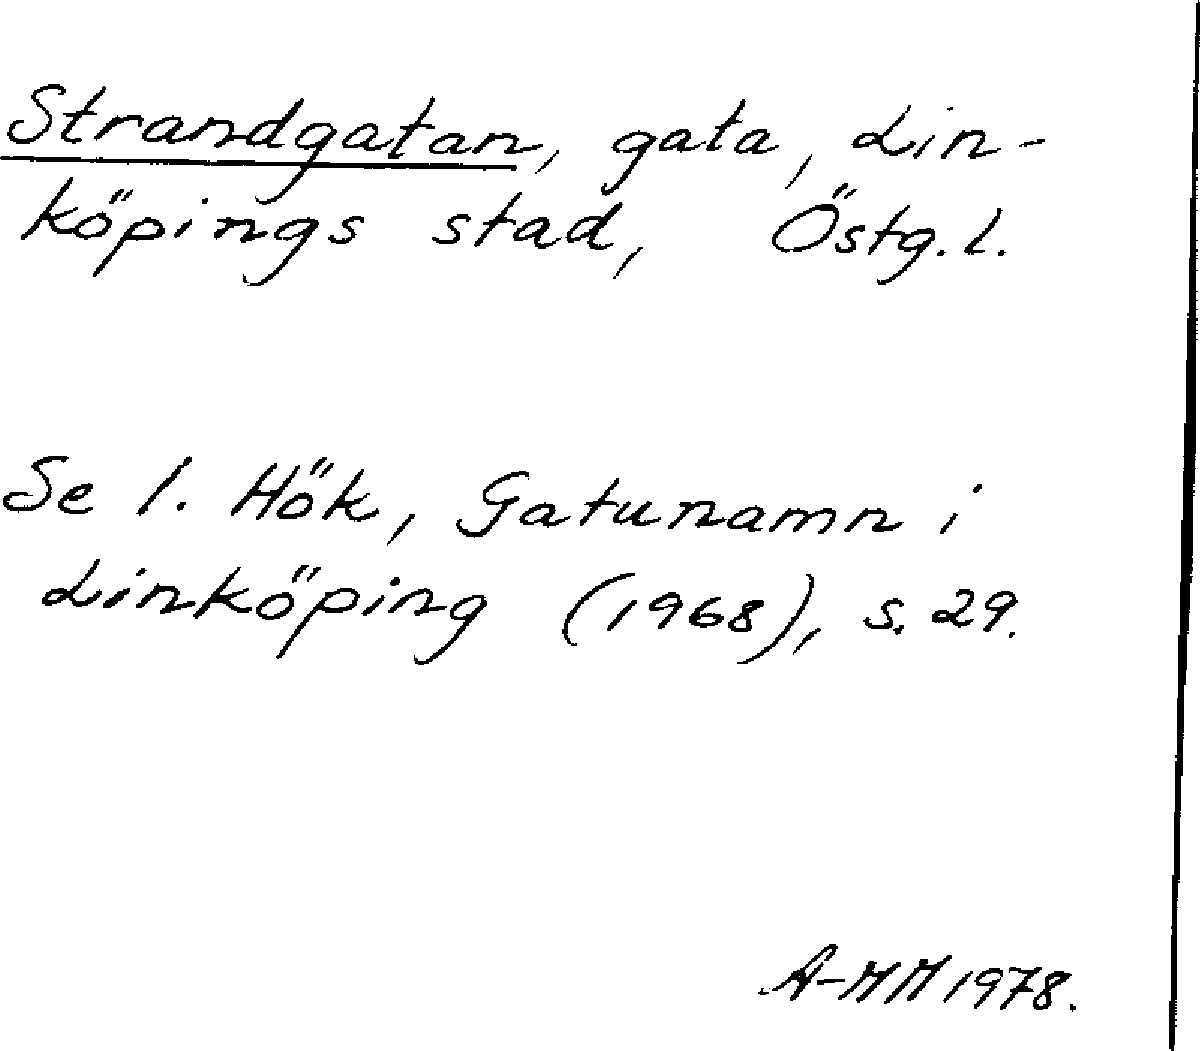 Strandgatan, gata, Lin-
köpings stad, Östg.l.
Se I. Hök, Gatunamn i
Linköping (1968), s. 29.
A-MM 1978.